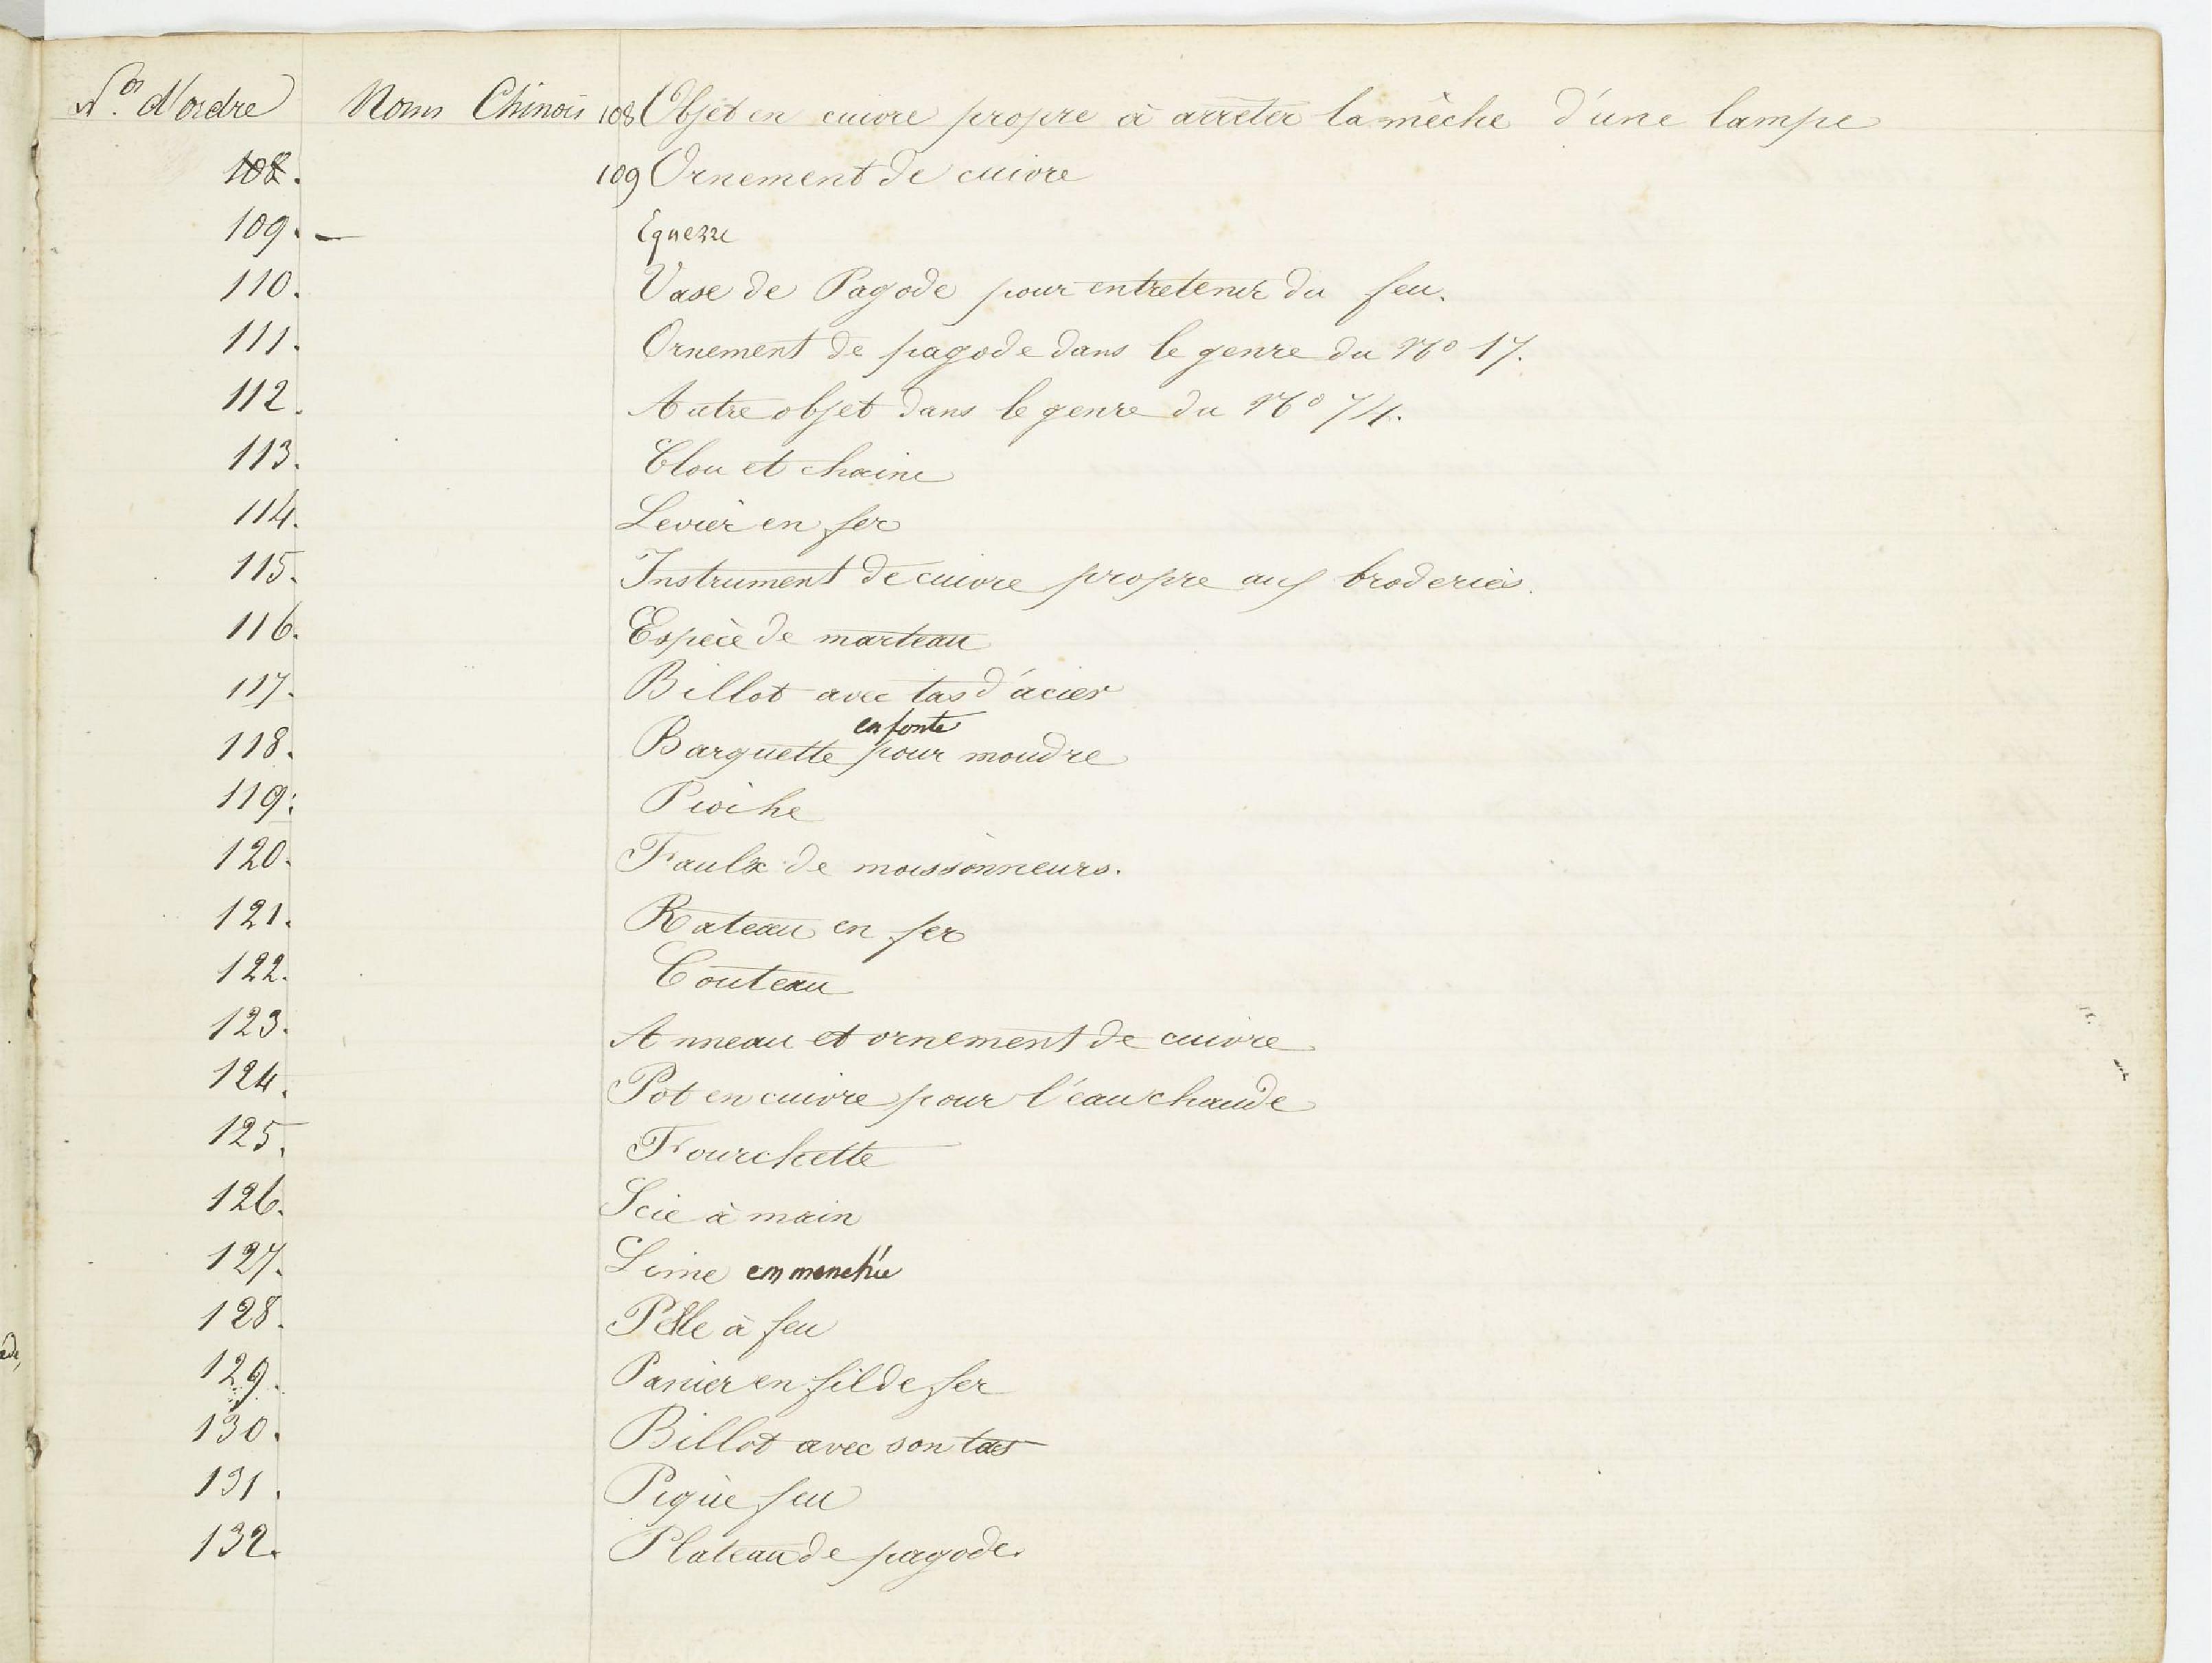 Nos d'ordre Noms Chinois 108 Objet en cuivre propre à arreter la mêche d'une lampe
108. 109 Ornement de cuivre
109. — Equerre
110. Vase de Pagode pour entretenir du feu.
111. Ornement de pagode dans le genre du No 17.
112. Autre objet dans le genre du No 74.
113. Clou et chaine
114. Levier en fer
115. Instrument de cuivre propre aux broderies.
116. Espèce de marteau
117. Billot avec tas d'acier
en fonte
118. Barquette pour moudre
119. Pioche
120. Faulx de moissonneurs.
121. Rateau en fer
122. Couteau
123. Anneau et ornement de cuivre
124. Pot en cuivre pour l'eau chaude
125. Fourchette
126. Scie à main
127. Lime emmenchée
128. Pelle à feu
129. Panier en fil de fer
130. Billot avec son tas
131. Pique feu
132. Plateau de pagode.